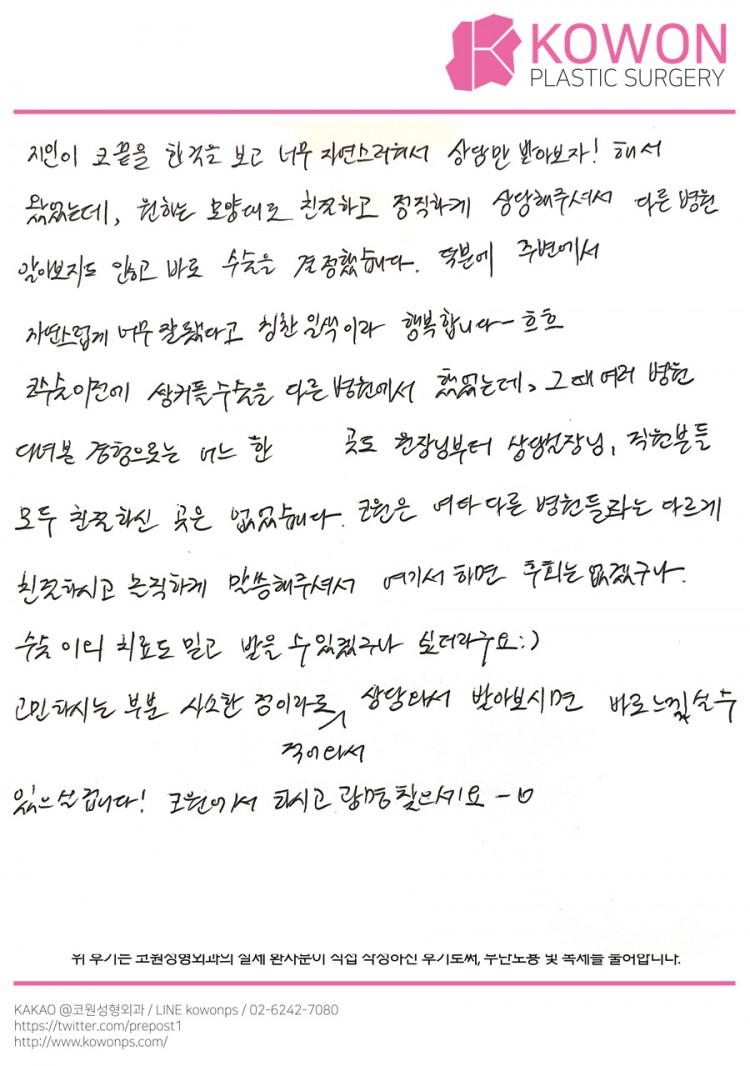 KOWON
PLASTIC SURGERY
지인이 코끝을 한것을 보고 너무 자연스러워서 상담만 받아보자! 해서
왔었는데, 원하는 모양대로 친절하고 정직하게 상담해주셔서 다른 병원
알아보지도 않고 바로 수술을 결정했습니다. 덕분에 주변에서
자연스럽게 너무 잘됐다고 칭찬 일색이라 행복합니다~ 흐흐
코수술 이전에 쌍커풀수술을 다른 병원에서 했었는데, 그때 여러 병원
다녀본 경험으로는 어느 한 곳도 원장님부터 상담실장님, 직원분들
모두 친절하신 곳은 없었습니다. 코원은 여타 다른 병원들과는 다르게
친절하시고 솔직하게 말씀해주셔서 여기서 하면 후회는 없겠구나.
수술 이외 치료도 믿고 받을 수 있겠구나 싶더라구요:)
고민하시는 부분 사소한 점이라도 상담와서 받아보시면 바로 느끼실 수
적어와서
있으실겁니다! 코원에서 하시고 광명 찾으세요 ~
위 후기는 코원성형외과의 실제 환자분이 직접 작성하신 후기로써, 무단도용 및 복제를 불허합니다.
KAKAO @코원성형외과 / LINE kowonps / 02-6242-7080
https://twitter.com/prepost1
http://www.kowonps.com/